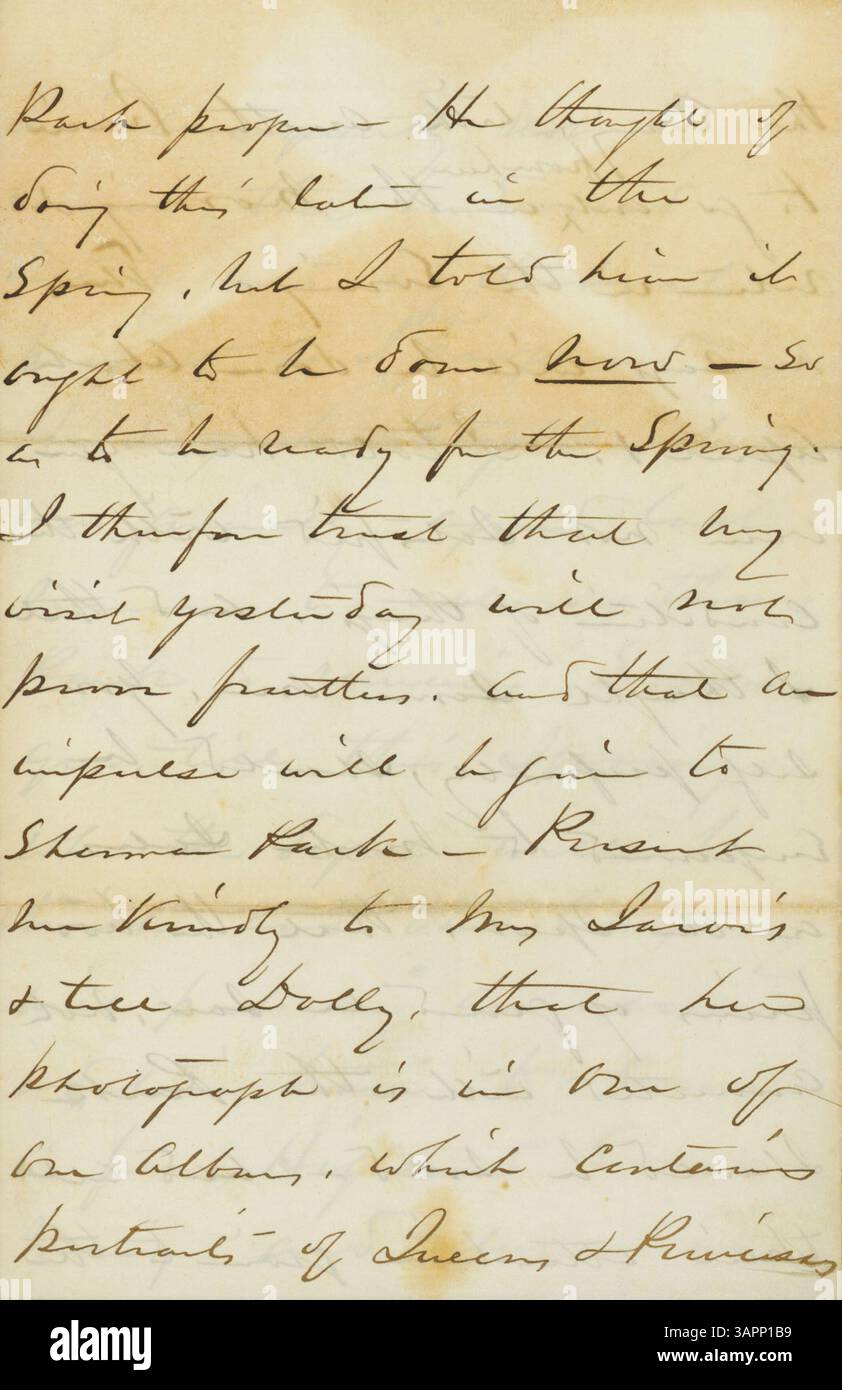 Park proper – He thought of
doing this later in the
Spring, but I told him it
ought to be done now – so
as to be ready for the Spring.
I therefore trust that my
visit yesterday will not
prove fruitless. and that an
impulse will be given to
Sherman Park – Present
me Kindly to Mrs Jarvis
& tell Dolly, that her
photograph is in one of
our Albums, which contains
portraits of Queens & Princesses
alamy
Image ID: 3APP1B9
www.alamy.com